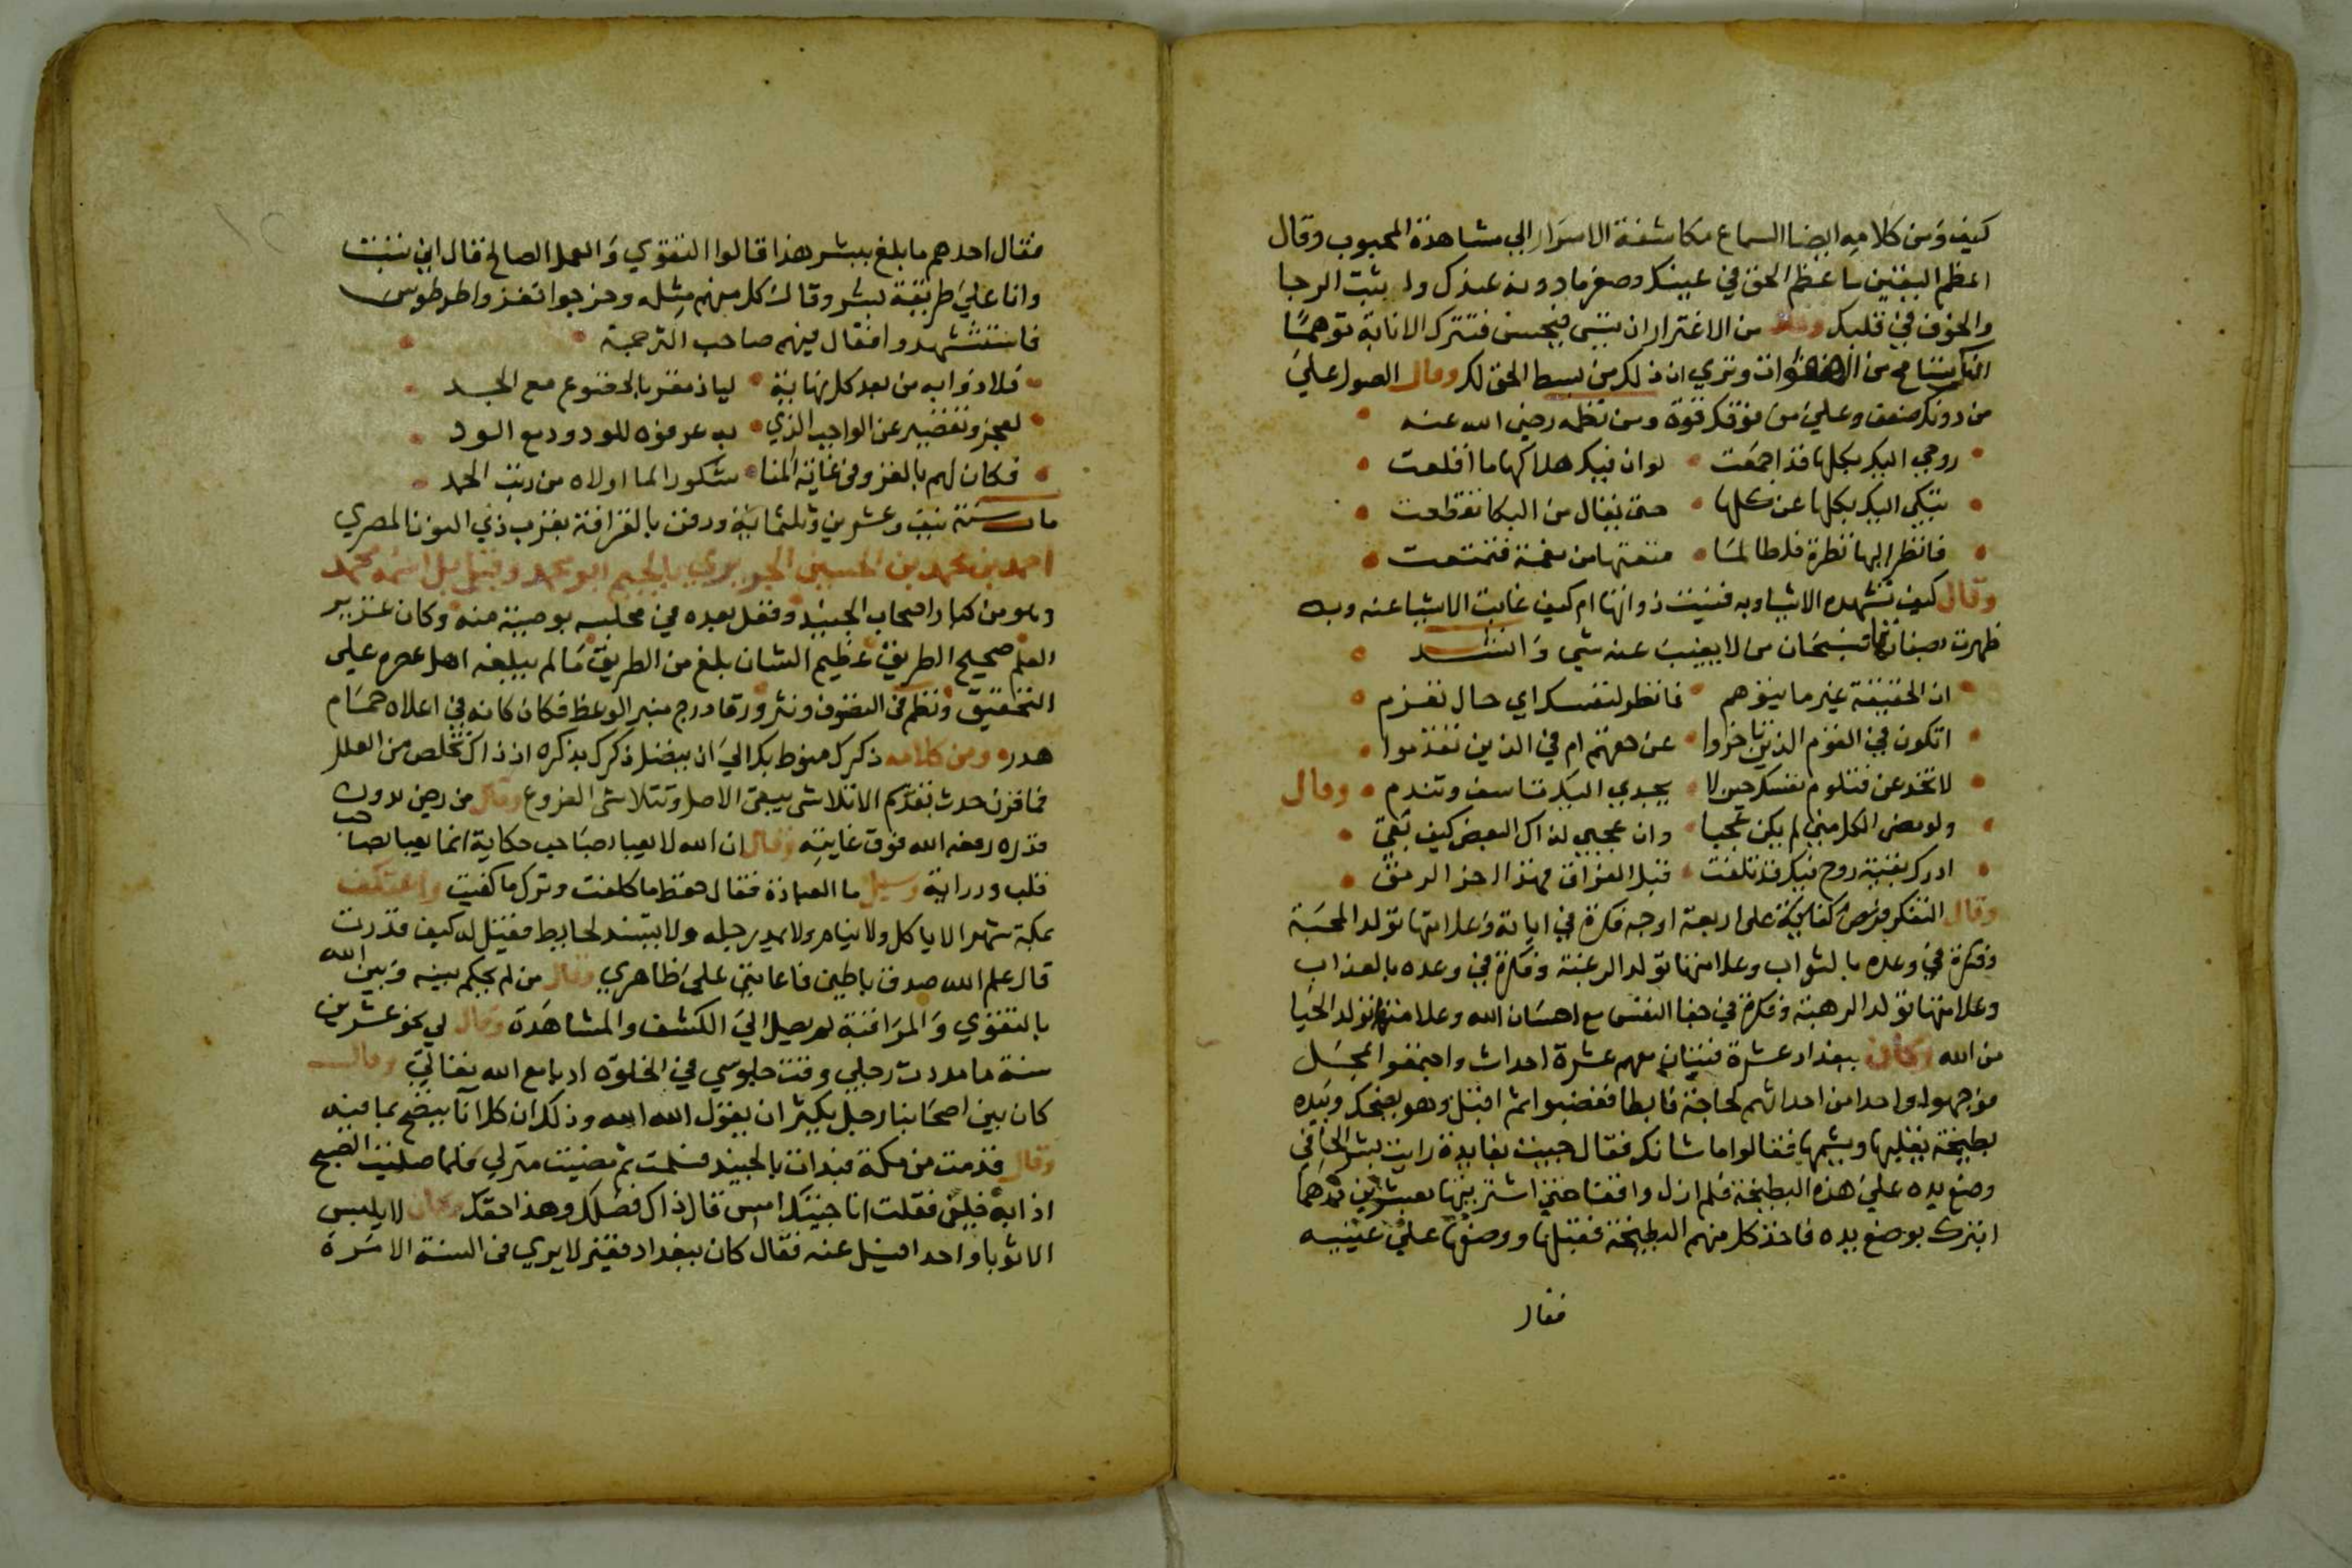 كيف ومن كلامه ايضا السماع مكاشفة الاسرار الي مشاهدة المحبوب وقال
اعظم اليقين ما عظم الحق في عينك وصغر ما دونه عندك وا ثبت الرجا
والخوف في قلبك وقال من الاغترار ان تسي فيحسن فتترك الانابة توهما
انك تسامح من الهفوات وتري ان ذلك من بسط الحق لك وقال الصول علي
من دونك ضعف وعلي من فوقك قوة ومن نظمه رضي الله عنه
روحي اليك بكلها قد اجمعت لو ان فيك هلاكها ما اقلعت
تبكي اليك بكلها عن كلها حتى يقال من البكا تقطعت
فانظر اليها نظرة فلطالما متعتها من نعمة فتمتعت
وقال كيف تشهده الاشيا وبه فنيت ذواتها ام كيف غابت الاشيا عنه وبه
ظهرت صفاتها فسبحان من لا يغيب عنه شي وانشد
ان الحقيقة غير ما يتوهم فانظر لنفسك اي حال تعزم
اتكون في القوم الذين تاخروا عن حقهم ام في الذين تقدموا
لا تخدعن فتلوم نفسك حين لا يجدي اليك تاسف وتندم وقال
ولو مضى الكل مني لم يكن عجبا وان عجبي لذاك البعض كيف بقي
ادرك بقية روح فيك قد تلفت قبل الفراق فهذا اخر الرمق
وقال التفكر فرض كفاية على اربعة اوجه فكرة في اياته وعلامتها تولد المحبة
وفكرة في وعده بالثواب وعلامتها تولد الرغبة وفكرة في وعده بالعذاب
وعلامتها تولد الرهبة وفكرة في جفا النفس مع احسان الله وعلامتها تولد الحيا
من الله وكان ببغداد عشرة فتيان معهم عشرة احداث واجتمعوا بمحل
فوجهوا واحدا من احداثهم لحاجة فابطا فغضبوا ثم اقبل وهو يضحك وبيده
بطيخة يقلبها ويشمها فقالوا ما شانك فقال جيت بفايدة رايت بشر الحافي
وضع يده علي هذه البطيخة فلم ازل واقفا حتي اشتريتها بعشرين درهما
اتبرك بوضع يده فاخذ كل منهم البطيخة فقبلها ووضعها علي عينيه
فقال
فقال احدهم ما بلغ ببشر هذا قالوا التقوي والعمل الصالح قال اني تبت
وانا علي طريقة بشر وقال كل منهم مثله وخرجوا تغزوا طرطوس
فاستشهدوا فقال فيهم صاحب الترجمة
فلاذوا به من بعد كل نهاية لياذ مقر بالخضوع مع الجد
لعجز وتقصير عن الواجب الذي به عرفوه للودود مع الود
فكان لهم بالعز وفي غاية المنا شكورا لما اولاه من رتب الحمد
مات سنة نيف وعشرين وثلثماية ودفن بالقرافة بقرب ذي النون المصري
احمد بن محمد بن الحسين الجريري بالجيم ابو محمد وقيل بل اسمه محمد
وهو من كبار اصحاب الجنيد وقعد بعده في مجلسه بوصية منه وكان غزير
العلم صحيح الطريق عظيم الشان بلغ من الطريق ما لم يبلغه اهل عصره على
التحقيق ونظم في التصوف ونثر ورقا درج منبر الوعظ فكان كانه في اعلاه حمام
هدر ومن كلامه ذكرك منوط بك الي ان يتصل ذكرك بذكره اذ ذاك تخلص من العلل
فما قرن حدث بقدم الا تلاشى يبقى الاصل وتتلاشى الفروع وقال من رضي بدون
قدره رفعه الله فوق غايته وقال ان الله لا يعبا بصاحب حكاية انما يعبا بصاحب
قلب ودراية وسيل ما العبادة فقال حفظ ما كلفت وترك ما كفيت واعتكف
بمكة شهرا لا ياكل ولا ينام ولا يمد رجله ولا يستند لحايط فقيل له كيف قدرت
قال علم الله صدق باطني فاعانني علي ظاهري وقال من لم يحكم بينه وبين الله
بالتقوي والمراقبة لم يصل الي الكشف والمشاهدة وقال لي نحو عشرين
سنة ما مددت رجلي وقت جلوسي في الخلوة ادبا مع الله تعالي وقال
كان بين اصحابنا رجل يكثر ان يقول الله الله وذلك ان كل انا ينضح بما فيه
وقال قدمت من مكة فبدات بالجنيد فسلمت ثم مضيت منزلي فلما صليت الصبح
اذا به خلفي فقلت انا جيتك امس قال ذاك فضلك وهذا حقك وكان لا يلبس
الا ثوبا واحدا فسيل عنه فقال كان ببغداد فقير لا يري في السنة الا مرة